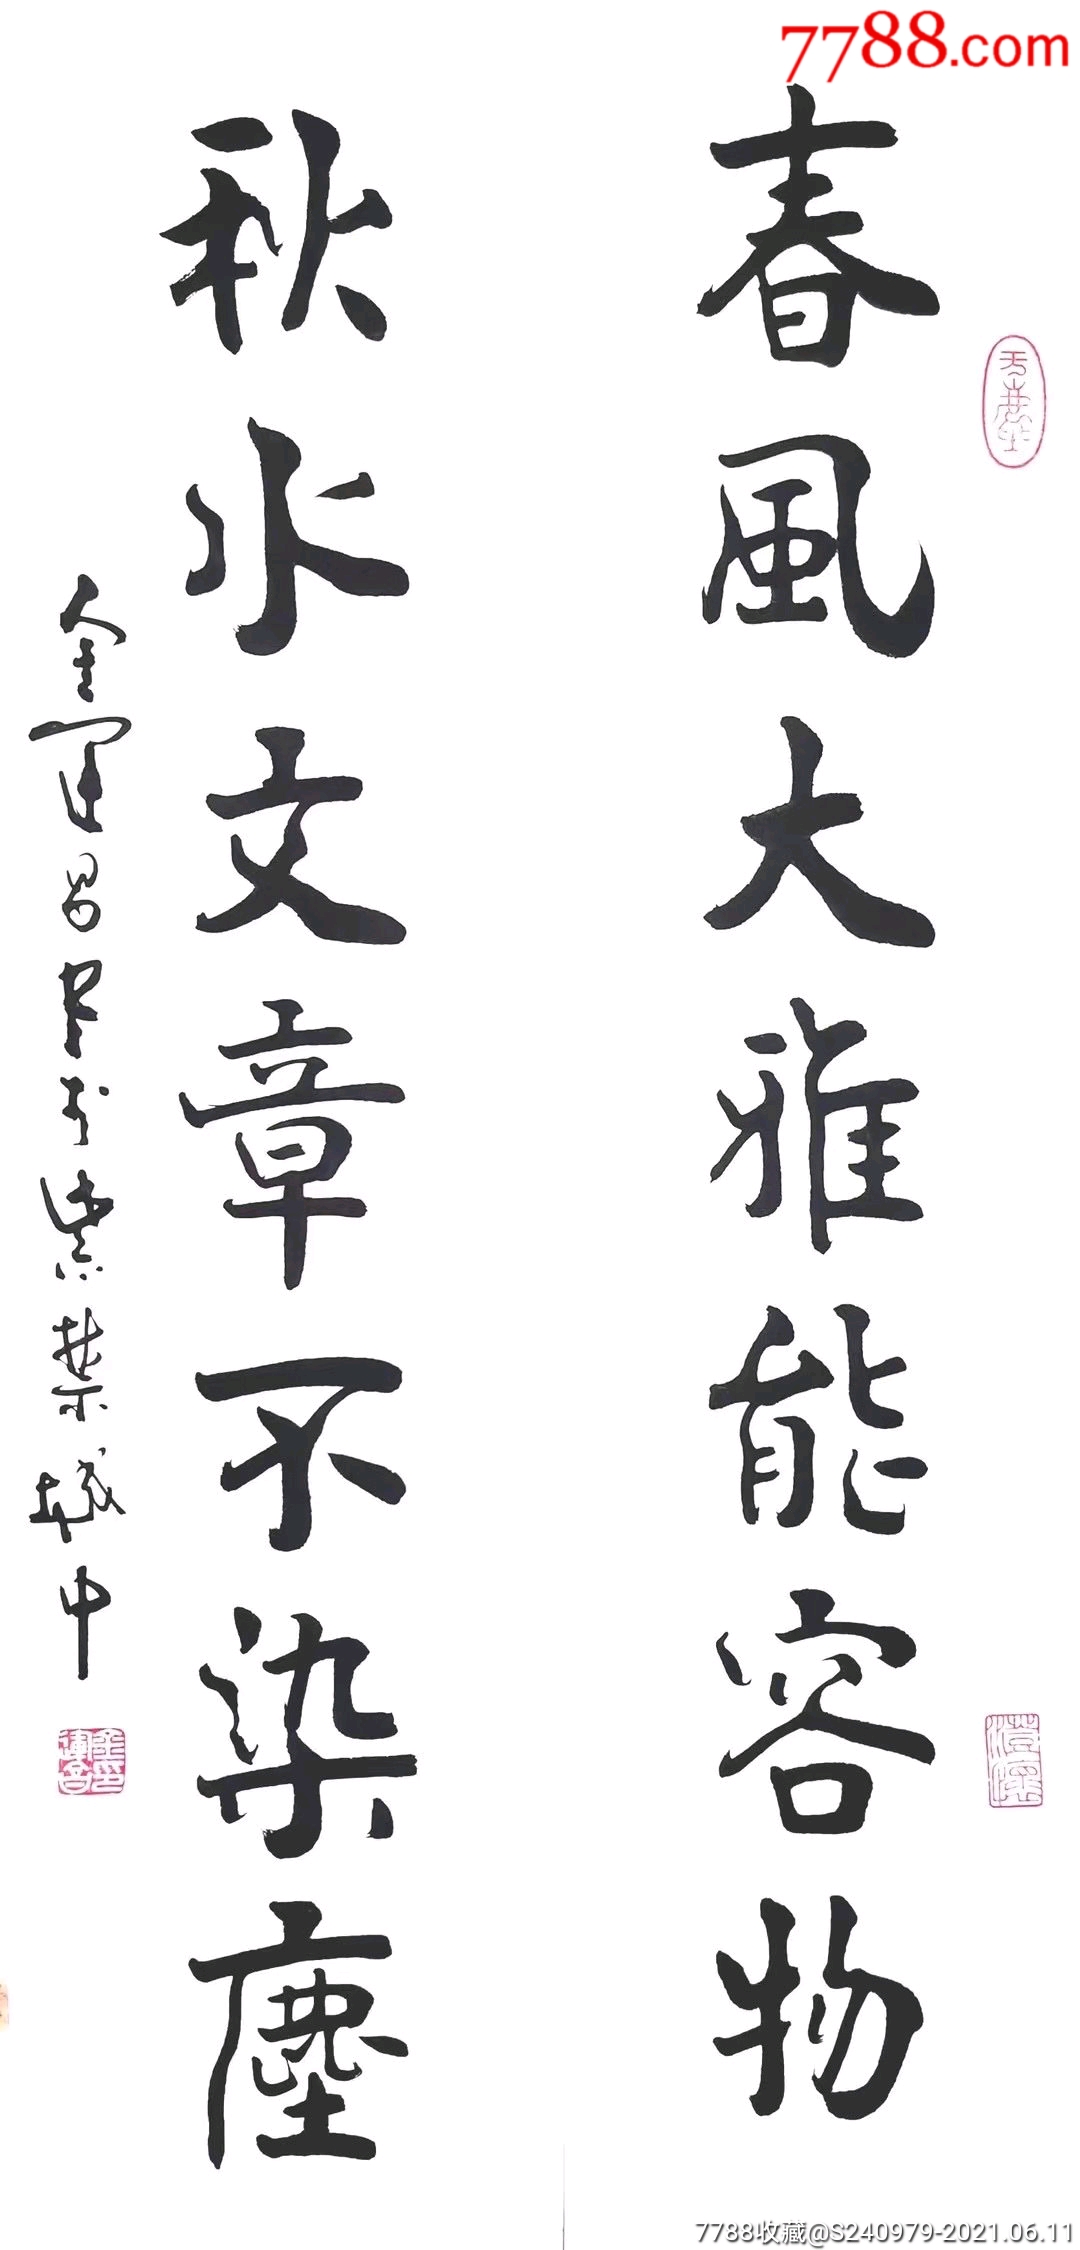 7788.com
春風大雅能容物
秋水文章不染塵
金運昌書於紫禁城中
金運昌印
7788收藏@S240979-2021.06.11